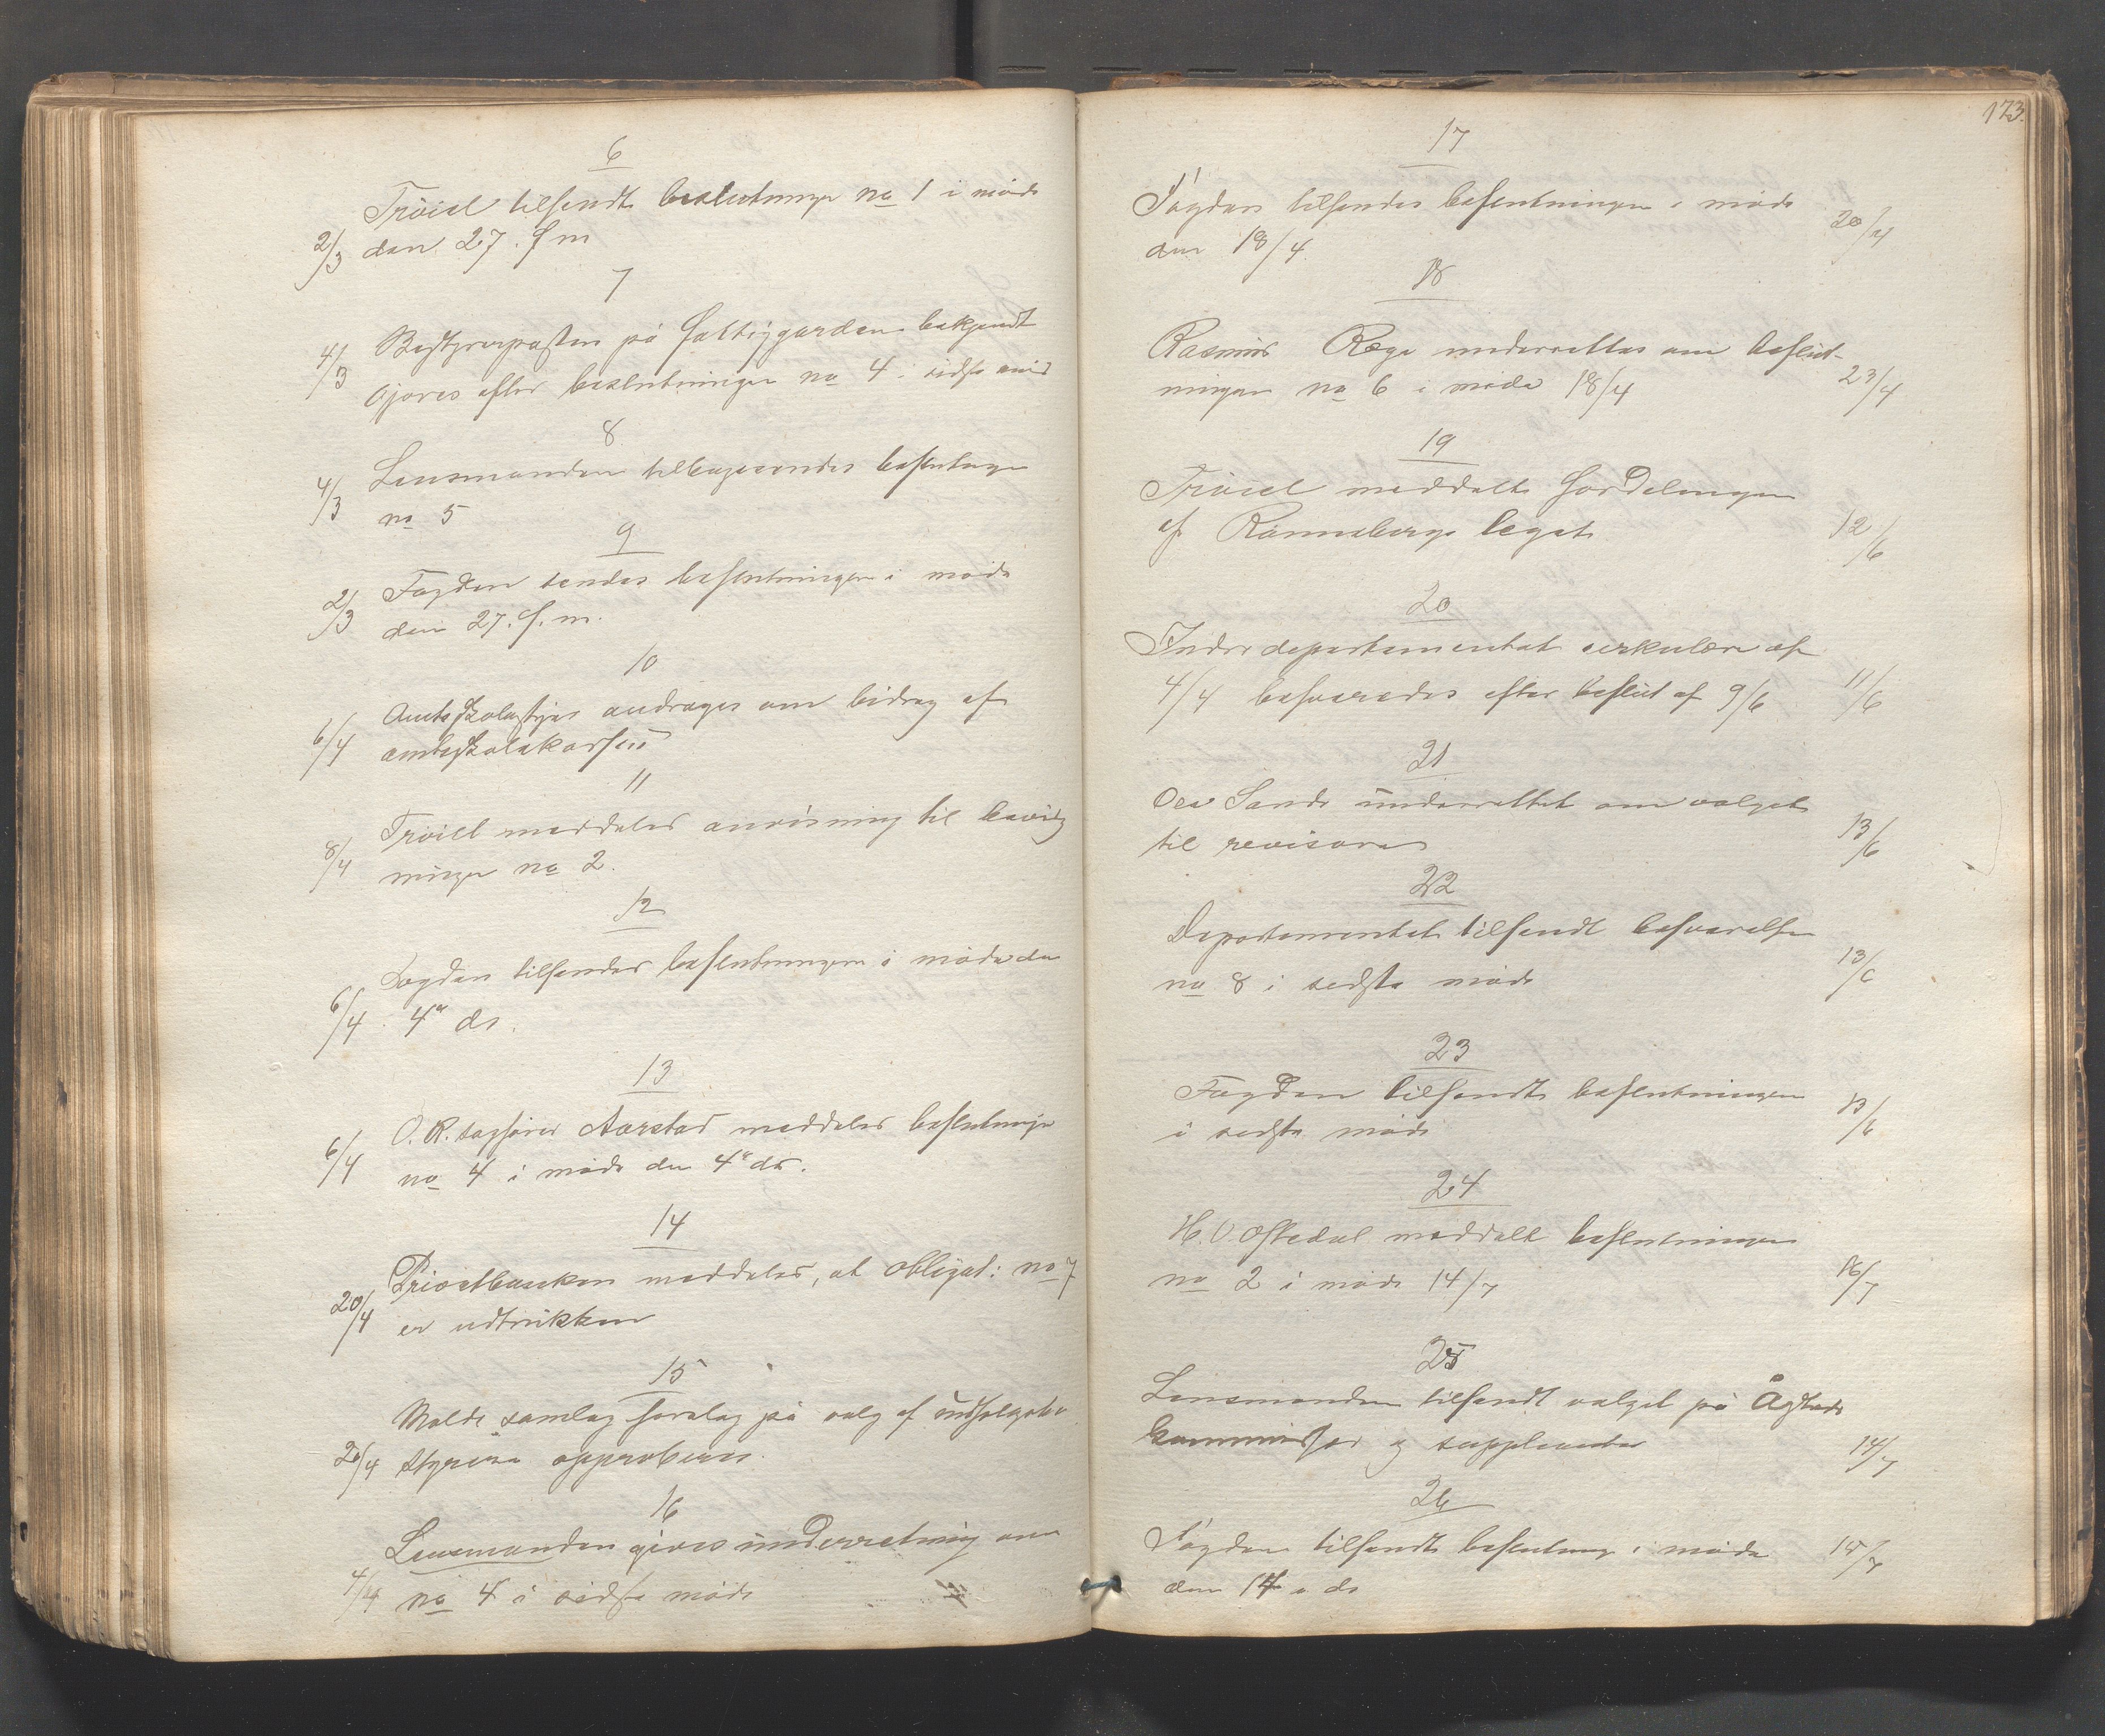 6
Tröiel tilsendt beslutninge no 1 i möde
2/3 den 27. f m
7
4/3 Bestyrerposten på fattiggarden bekjendt
gjöres efter beslutningen no 4 i sidste möde
8
4/3 Lensmanden tilbagesendes beslutnge
no 5
9
2/3 Fogden sendes beslutningen i möde
den 27. f. m.
10
6/4 Amtsskolestyre andrages om bidrag af
amtsskolekassen
11
8/4 Tröiel meddeles anvisning til bevilg
ninge no 2.
12
Fogden tilsendes beslutningen i möde den
6/4 4de ds.
13
6/4 O. R. sagförer Aarstad meddeles beslutninge
no 4 i möde den 4de ds.
14
Privatbanken meddeles, at obligat: no 7
20/4 er udtrukken
15
Molde samlag forslag på valg af udsalgsbe
20/4 styrere approberes.
16
Lensmanden gives underretning om
4/4 no 4 i sidste möde
173.
17
Fogden tilsendes beslutningen i möde
den 18/4. 20/4
18
Rasmus Rege underrettes om beslut-
ningen no 6 i möde 18/4 23/4
19
Tröiel meddelt fordelingen
af Rönnebergs legat 12/6
20
Indredepartementet cirkulære af
4/4 besvaredes efter beslut af 9/6 11/6
21
Ole Sande underrettet om valget
til revisorer 13/6
22
Departementet tilsendt besvarelsen
no 8 i sidste möde 13/6
23
Fogden tilsendt beslutningen
i sidste möde 13/6
24
H. O. Oftedal meddelt beslutningen
no 2 i möde 14/7 16/7
25
Lensmanden tilsendt valget på Åstads
kommissær og supplenter 14/7
26
Fogden tilsendt beslutning i möde 15/7
den 14 ds